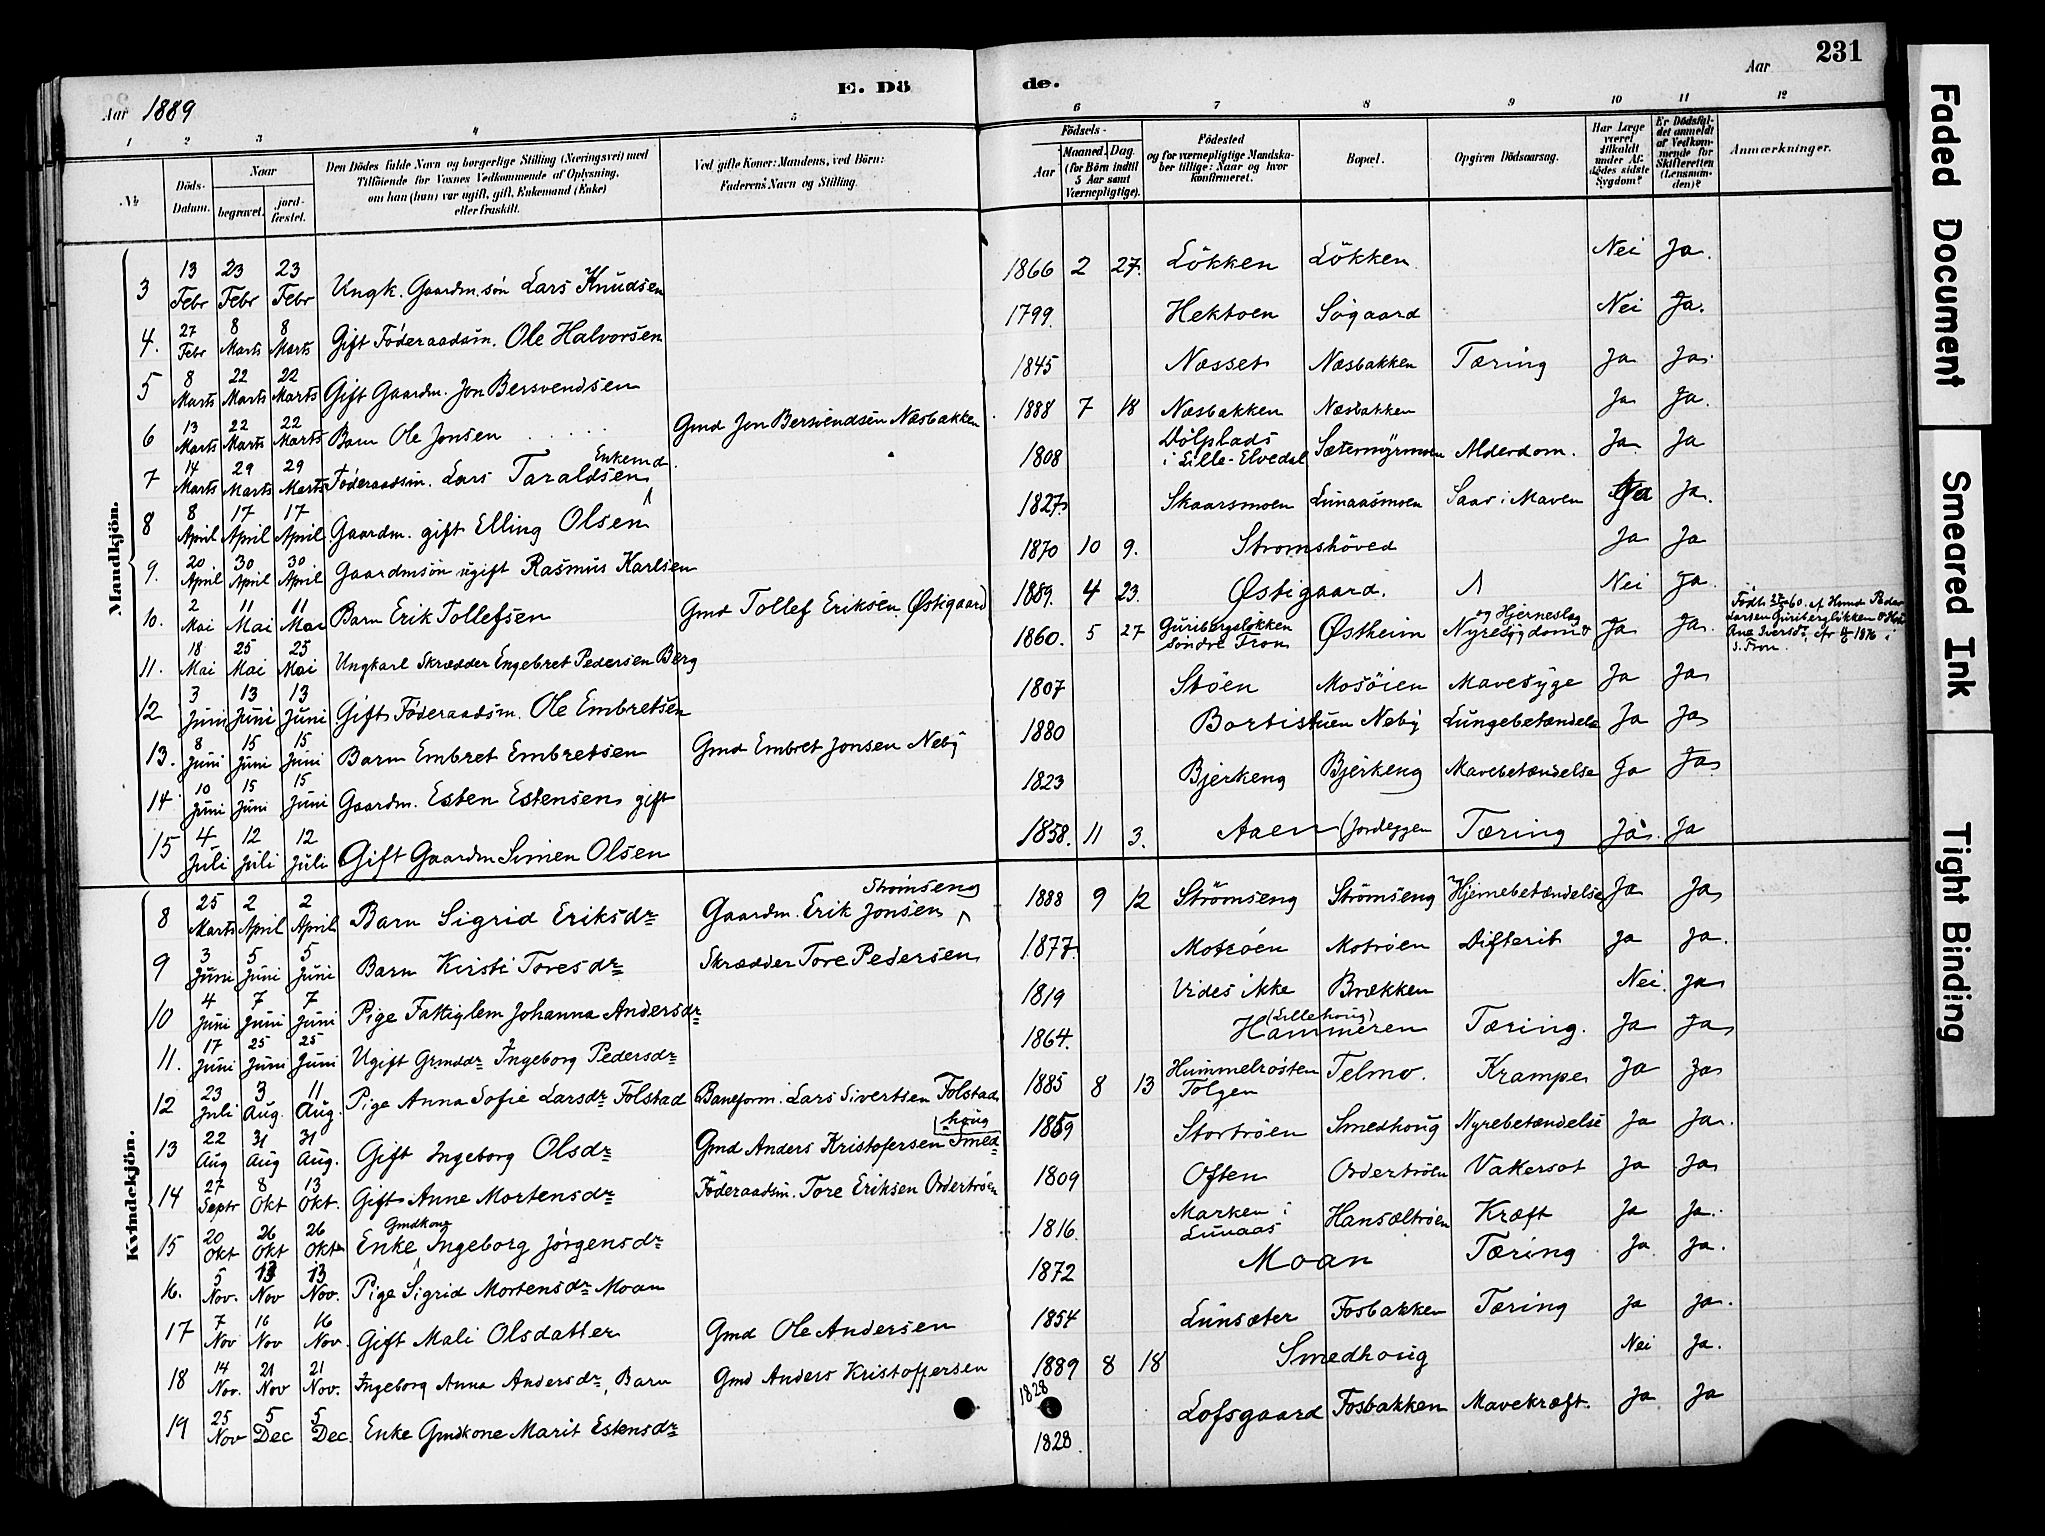 231
E. Dö de.
Aar 1889
Aar
1 2 3 4 5 6 7 8 9 10 11 12
№
Döds-Datum.
Naar
begravet.
jord-fæstet.
Den Dödes fulde Navn og borgerlige Stilling (Næringsvei) med
Tilföiende for Voxnes Vedkommende af Oplysning,
om han (hun) var ugift, gift, Enkemand (Enke)
eller fraskilt.
Ved gifte Koner: Mandens, ved Börn:
Faderens Navn og Stilling.
Födsels-
Aar
Maaned. Dag
(for Börn indtil
5 Aar samt
Værnepligtige).
Födested
og for værnepligtige Mandska-
ber tillige: Naar og hvor
konfirmeret.
Bopæl.
Opgiven Dödsaarsag.
Har Læge
været
tilkaldt
under Af-
dödes sidste
Sygdom?
Er Dödsfal-
det anmeldt
af Vedkom-
mende for
Skifteretten
(Lensman-
den)?
Anmærkninger.
Mandkjön.
3 13 Febr 23 Febr 23 Febr Ungk. Gaardm. søn Lars Knudsen 1866 2 27. Løkken Løkken Nei Ja.
4. 27 Febr 8 Marts 8 Marts Gift Føderaadsm. Ole Halvorsen 1799. Hektoen Søgaard Nei Ja.
5 8 Marts 22 Marts 22 Marts Gift Gaardm. Jon Bersvendsen 1845 Næsset Næsbakken Tæring Ja Ja.
6 13 Marts 22 Marts 22 Marts Barn Ole Jonsen Gmd Jon Bersvendsen Næsbakken 1888 7 18 Næsbakken Næsbakken Ja Ja.
7 14 Marts 29 Marts 29 Marts Føderaadsm. Lars Taraldsen Enkemd. 1808 Dølplads i Lille-Elvedal Sætermyrmoen Alderdom. Ja Ja
8 8 April 17 April 17 April Gaardm. gift Elling Olsen 1827. Skaarsmoen Lunaasmoen Saar i Maven Ja Ja.
9. 20 April 30 April 30 April Gaardmsøn ugift Rasmus Karlsen 1870 10 9. Strømshøved Ja Ja
10. 2 Mai 11 Mai 11 Mai Barn Erik Tollefsen Gmd Tollef Eriksen Østigaard 1889. 4 23. Østigaard. Nei Ja
11. 18 Mai 25 Mai 25 Mai Ungkarl Skrædder Engebret Pedersen Berg 1860. 5 27 Guribergsløkken Søndre Fron Østheim Nyresygdom og Hjerneslag Ja Ja. Født 27/5 60. af Husmd Peder Larsen Guribergløkken & Hu Ane Iversdr, cfr 1876 i S. Fron.
12 3 Juni 13 Juni 13 Juni Gift Føderaadsm. Ole Embretsen 1807 Støen Mosøien Mavesyge Ja Ja
13. 8 Juni 15 Juni 15 Juni Barn Embret Embretsen Gmd Embret Jonsen Neby 1880 Bortistuen Neby Lungebetændelse Ja Ja
14 10 Juni 15 Juni 15 Juni Gaardm. Esten Estensen gift 1823 Bjerkeng Bjerkeng Mavebetændelse Ja Ja
15 4 Juli 12 Juli 12 Juli Gift Gaardm Simen Olsen 1858. 11 3. Aaen (Jordeggen Tæring Ja. Ja
Kvindekjön.
8 25 Marts 2 April 2 April Barn Sigrid Eriksdr Gaardm. Erik Jonsen Strømseng 1888 9 12 Strømseng Strømseng Hjernebetændelse Ja Ja
9 3 Juni 5 Juni 5 Juni Barn Kirsti Toresdr Skrædder Tore Pedersen 1877. Motrøen Motrøen Difterit Ja Ja.
10 4 Juni 7 Juni 7 Juni Pige Fattiglem Johanna Andersdr 1819 Vides ikke Brækken Nei. Ja
11. 17 Juni 25 Juni 25 Juni Ugift Grmddr Ingeborg Pedersdr 1864. Hammeren (Lillehoug) Tæring. Ja Ja
12 23 Juli 3 Aug. 11 Aug. Pige Anna Sofie Larsdr Folstad Baneform. Lars Sivertsen Folstad 1885 8 13 Hummelrøsten Tolgen Telmo. Krampe Ja Ja
13 22 Aug 31 Aug 31 Aug. Gift Ingeborg Olsdr Gmd Anders Kristofersen Smedhoug 1859 Stortrøen Smedhoug Nyrebetændelse Ja Ja.
14 27 Septr 8 Okt 13 Okt. Gift Anne Mortensdr Føderaadsm. Tore Eriksen Ordertrøen 1809 Often Ordertrøen Vatersot Ja Ja
15 20 Okt 26 Okt 26 Okt Enke Gmdkone Ingeborg Jørgensdr 1816. Marken i Lunaas Hansæltrøen Kræft Ja Ja.
16. 5 Nov. 13 Nov 13 Nov. Pige Sigrid Mortensdr Moan 1872 Moan Tæring Ja. Ja.
17 7 Nov 16 Nov 16 Nov. Gift Mali Olsdatter Gmd Ole Andersen 1854 Lunsæter Fosbakken Tæring Ja Ja.
18 14 Nov. 21 Nov 21 Nov. Ingeborg Anna Andersdr, Barn Gmd Anders Kristoffersen 1889 8 18 Smedhoug Nei Ja.
19 25 Nov 5 Dec 5 Dec. Enke Gmdkone Marit Estensdr 1828 1828. Lofsgaard Fosbakken Mavekræft. Ja Ja
Faded Document
Smeared Ink
Tight Binding